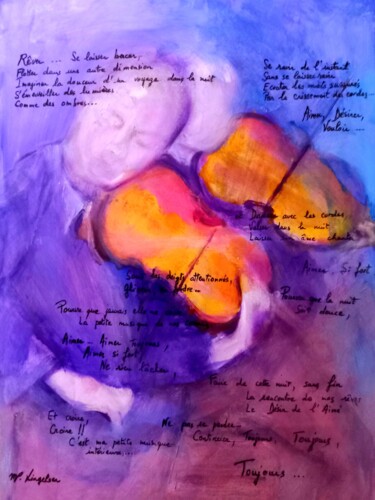 Rêver ... Se laisser bercer,
Flotter dans une autre dimension
Imaginer la douceur d'un voyage dans la nuit
S'émerveiller des lumières
Comme des ombres...
Se rire de l'instant
Sans se laisser
Ecouter les mots
Par le crissement des cordes...
Aimer, Désirer,
Vouloir...
avec les cordes
dans la nuit
Laisser âme chanter
Aimer. Si fort
Sous les doigts attentionnés,
Pourvu que la nuit
Soit douce,
Pourvu que jamais elle ne
La petite musique de
Aimer... Aimer toujours,
Aimer si fort
Ne rien lâcher,
Faire de cette nuit, sans fin
La rencontre de nos rêves
Le Désir de l'Aimé
Et croire,
Croire !!
C'est ma petite musique
intérieure...
Ne pas se perdre...
Continuer, Toujours, Toujours,
Toujours...